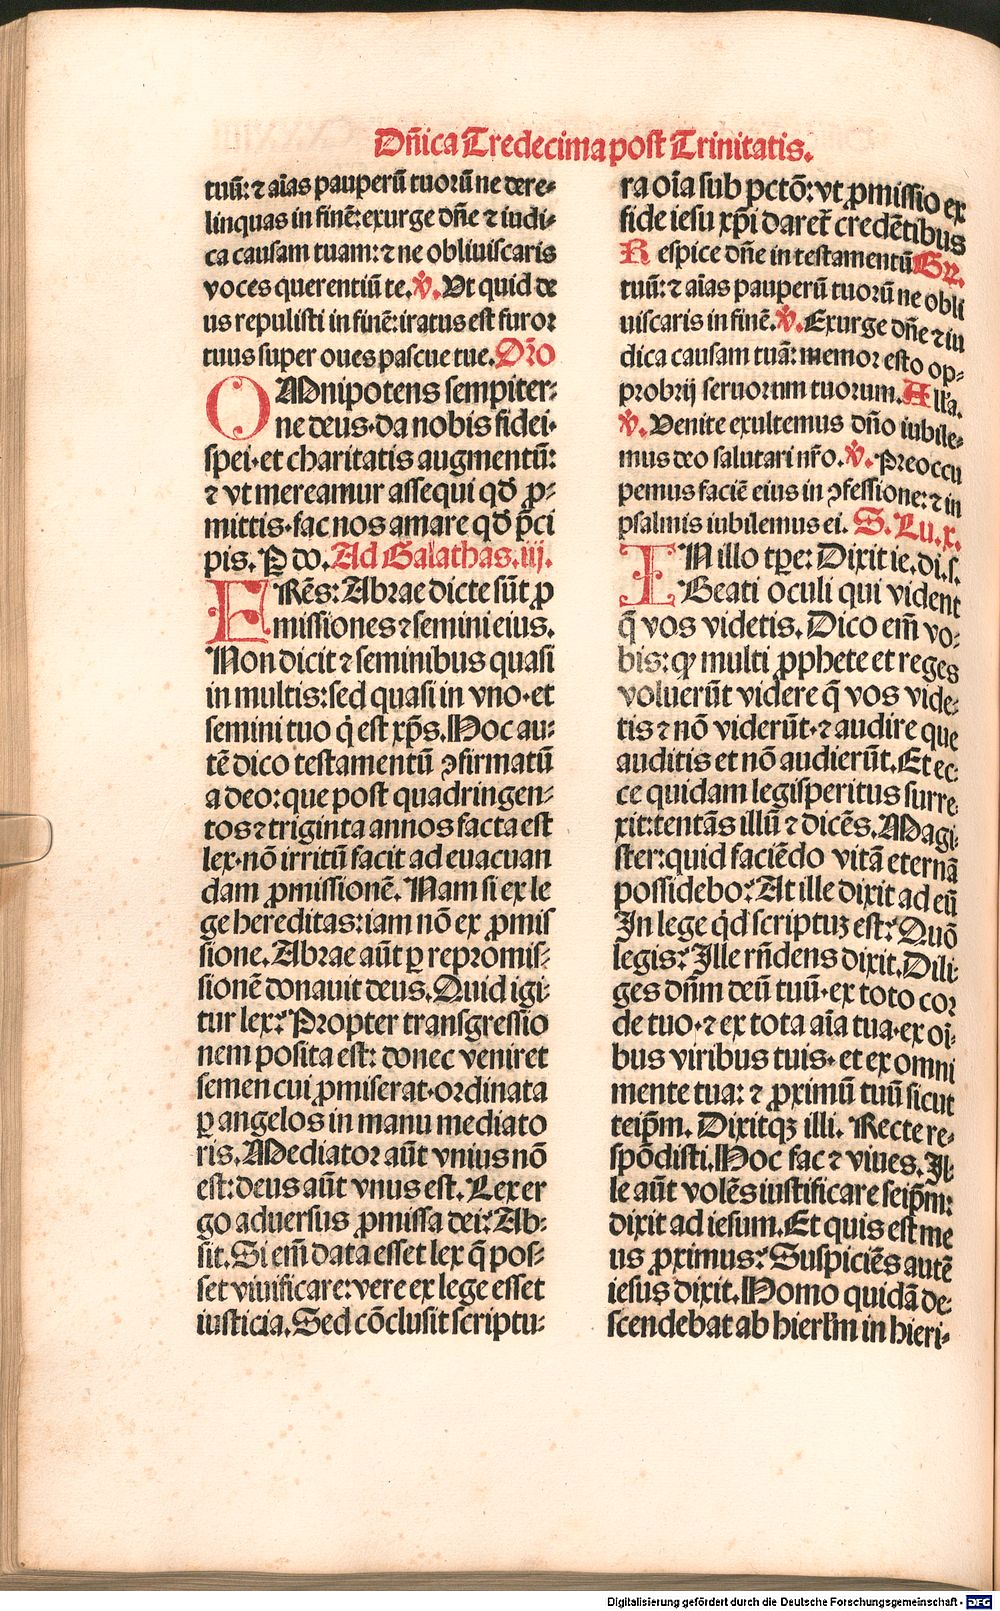 Dñica Tredecima post Trinitatis.
tuũ: ⁊ aĩas pauperũ tuorũ ne dere⸗
linquas in finẽ: exurge dñe ⁊ iudi⸗
ca causam tuam: ⁊ ne obliuiscaris
voces querentiũ te. ℣. Ut quid de
us repulisti in finẽ: iratus est furor
tuus super oues pascue tue. Oŕo
OMnipotens sempiter⸗
ne deus· da nobis fidei·
spei· et charitatis augmentũ:
⁊ vt mereamur assequi qđ ꝓ⸗
mittis· fac nos amare qđ p̃ci
pis. P do. Ad Galathas. iij.
FRẽs: Abrae dicte sũt ꝓ
missiones ⁊ semini eius.
Non dicit ⁊ seminibus quasi
in multis: sed quasi in vno· et
semini tuo q̇ est xp̃s. Hoc au⸗
tẽ dico testamentũ ꝯfirmatũ
a deo: que post quadringen⸗
tos ⁊ triginta annos facta est
lex· nõ irritũ facit ad euacuan
dam ꝓmissionẽ. Nam si ex le
ge hereditas: iam nõ ex ꝓmis
sione. Abrae aũt ꝑ repromis⸗
sionẽ donauit deus. Quid igi⸗
tur lex? Propter transgressio
nem posita est: donec veniret
semen cui ꝓmiserat· ordinata
ꝑ angelos in manu mediato
ris. Mediator aũt vnius nõ
est: deus aũt vnus est. Lex er
go aduersus ꝓmissa dei? Ab⸗
sit. Si em̃ data esset lex q̃ pos⸗
set viuificare: vere ex lege esset
iusticia. Sed cõclusit scriptu⸗
ra oĩa sub pctõ: vt ꝓmissio ex
fide iesu xp̃i daret̃ credẽtibus
Respice dñe in testamentũ Gr.
tuũ: ⁊ aĩas pauperũ tuorũ ne obli
uiscaris in finẽ. ℣. Exurge dñe ⁊ iu
dica causam tuã: memor esto op⸗
probrij seruorum tuorum. Alla.
℣. Venite exultemus dño iubile⸗
mus deo salutari nr̃o. ℣. Preoccu
pemus faciẽ eius in ꝯfessione: ⁊ in
psalmis iubilemus ei. S. Lu. x.
IN illo tp̃e: Dixit ie. di. s.
Beati oculi qui vident
q̃ vos videtis. Dico em̃ vo⸗
bis: ꝙ multi ꝓphete et reges
voluerũt videre q̃ vos vide⸗
tis ⁊ nõ viderũt· ⁊ audire que
auditis et nõ audierũt. Et ec⸗
ce quidam legisperitus surre
xit: tentãs illũ ⁊ dicẽs. Magi⸗
ster: quid faciẽdo vitã eternã
possidebo? At ille dixit ad eũ
In lege q̇d scriptuꝫ est? Quõ
legis? Ille rñdens dixit. Dili⸗
ges dñm deũ tuũ· ex toto cor
de tuo· ⁊ ex tota aĩa tua· ex oĩ⸗
bus viribus tuis· et ex omni
mente tua: ⁊ ꝓximũ tuũ sicut
teip̃m. Dixitqꝫ illi. Recte re⸗
spõdisti. Hoc fac ⁊ viues. Il⸗
le aũt volẽs iustificare seip̃m:
dixit ad iesum. Et quis est me
us ꝓximus? Suspiciẽs autẽ
iesus dixit. Homo quidã de⸗
scendebat ab hierl̃m in hieri⸗
Digitalisierung gefördert durch die Deutsche Forschungsgemeinschaft - DFG